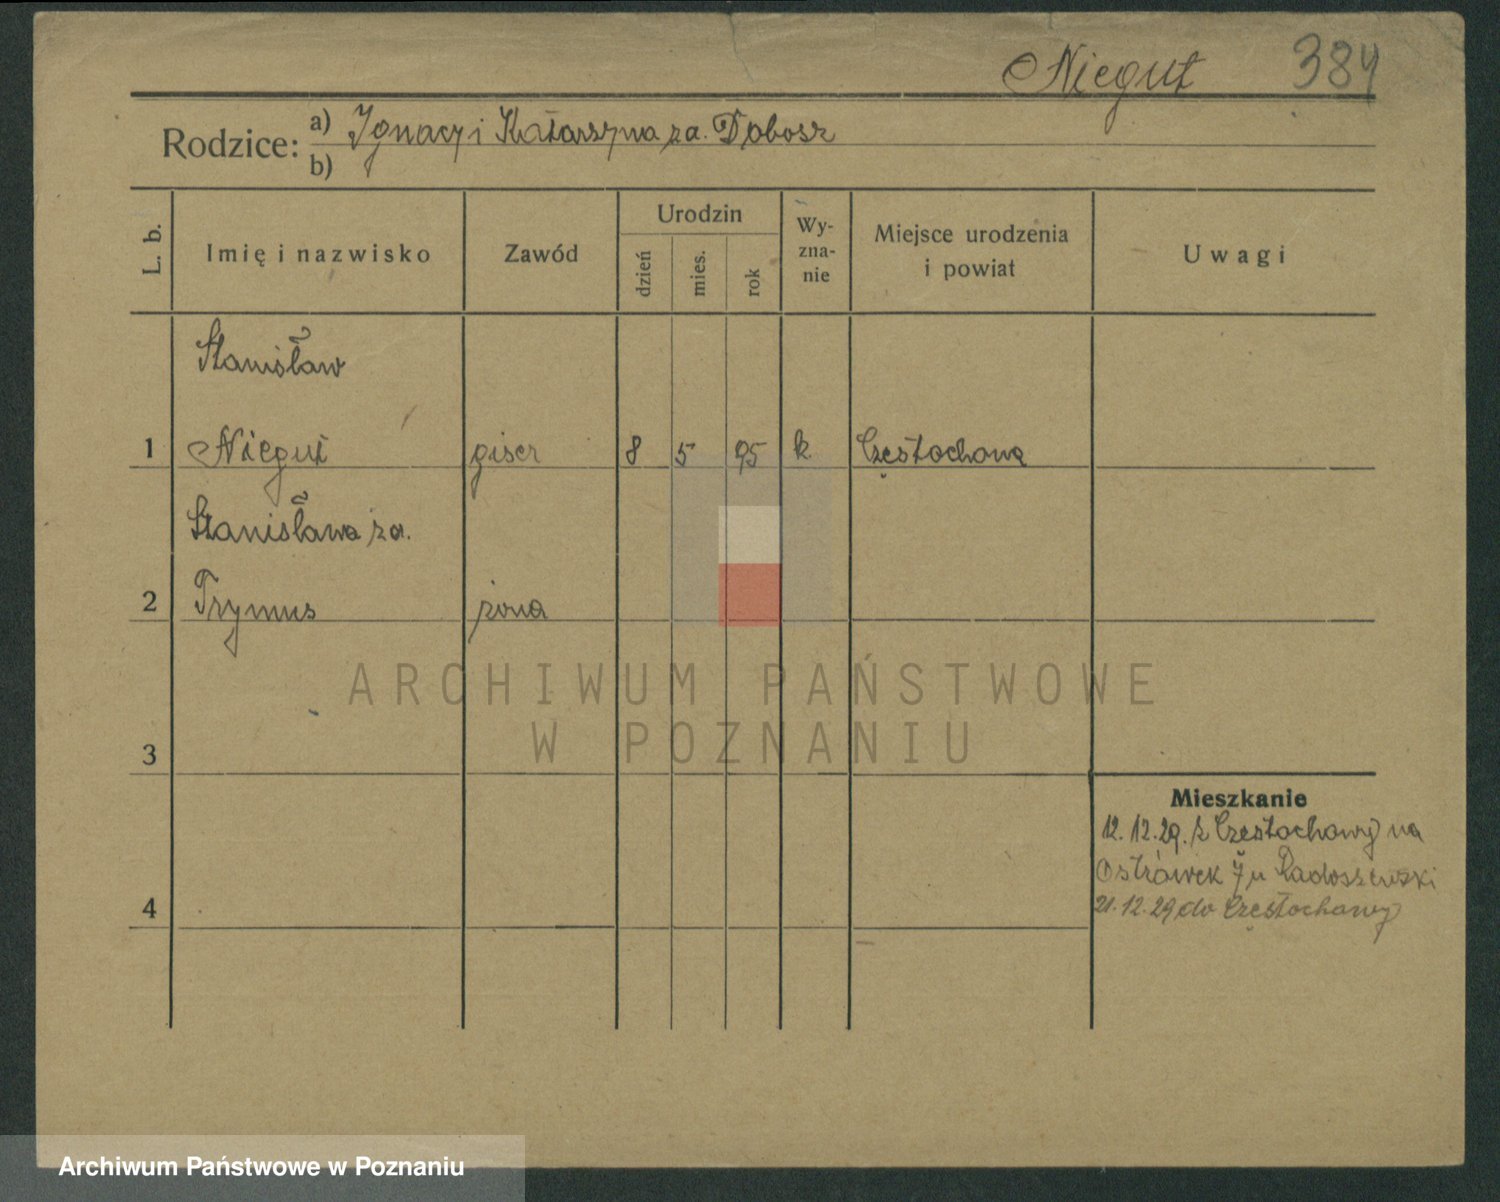 Niegut 384
Rodzice: a) Ignacy i Katarzyna za. Dobosz
b)
L. b.
Imię i nazwisko
Zawód
Urodzin
dzień
mies.
rok
Wy-
zna-
nie
Miejsce urodzenia
i powiat
Uwagi
Stanisław
1 Niegut giser 8 5 95 k Częstochowa
Stanisława za.
2 Trymus żona
3
4
Mieszkanie
12.12.29. z Częstochowy na
Ostrówek 7 u
21.12.29 do Częstochowy
ARCHIWUM PAŃSTWOWE
W POZNANIU
Archiwum Państwowe w Poznaniu